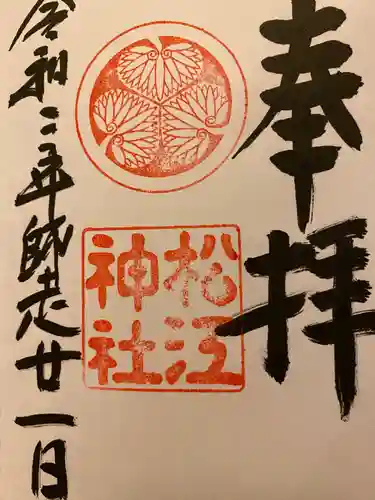 奉拝
松江
神社
令和二年師走廿一日